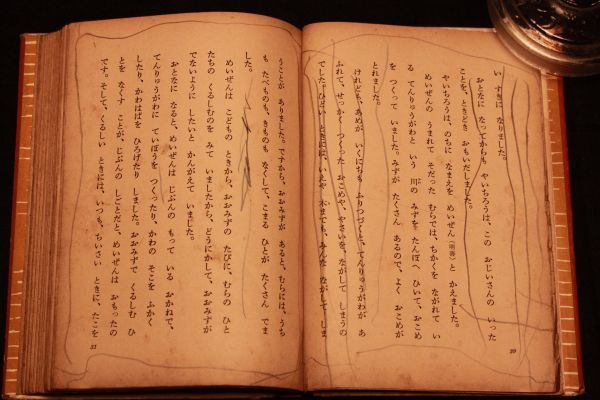 い すきに なりました。
おとなに なってからも やいちろうは、この おじいさんの いった
ことを、ときどき おもいだしました。
やいちろうは、のちに なまえを めいぜん（明善）と かえました。
めいぜんの うまれて そだった むらでは、ちかくを ながれて い
る てんりゅうがわと いう 川の みずを たんぼへ ひいて、おこめ
を つくって いました。みずが たくさん あるので、よく おこめが
とれました。
けれども、あめが いくにちも ふりつづくと、てんりゅうがわが あ
ふれて、せっかく つくった おこめや、やさいを、ながして しまうの
でした。ひどい ときには、いえや 木までも、みんな ながして しま
うことが ありました。ですから、おおみずが あると、むらには、うち
も たべものも、きものも なくして、こまる ひとが たくさん でま
した。
めいぜんは こどもの ときから、おおみずの たびに、むらの ひと
たちの くるしむのを みて いましたから、どうにかして、おおみずが
でないように したいと かんがえて いました。
おとなに なると、めいぜんは じぶんの もって いる おかねで、
てんりゅうがわに ていぼうを つくったり、かわの そこを ふかく
したり、かわはばを ひろげたり しました。おおみずで くるしむ ひ
とを なくす ことが、じぶんの しごとだと、めいぜんは おもったの
です。そして、くるしい ときには、いつも、ちいさい ときに、たこを